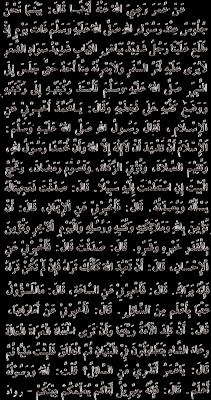 عن عمر رضي الله عنه أيضا قال: بينما نحن
جلوس عند رسول الله صلى الله عليه وسلم ذات يوم إذ
طلع علينا رجل شديد بياض الثياب شديد سواد الشعر
لا يرى عليه أثر السفر ولا يعرفه منا أحد حتى جلس إلى
النبي صلى الله عليه وسلم فأسند ركبتيه إلى ركبتيه
ووضع كفيه على فخذيه وقال: يا محمد أخبرني عن
الإسلام. فقال رسول الله صلى الله عليه وسلم:
الإسلام أن تشهد أن لا إله إلا الله وأن محمدا رسول الله
وتقيم الصلاة، وتؤتي الزكاة، وتصوم رمضان، وتحج
البيت إن استطعت إليه سبيلا. قال: صدقت فعجبنا له
يسأله ويصدقه. قال: فأخبرني عن الإيمان. قال: أن
تؤمن بالله وملائكته وكتبه ورسله واليوم الآخر وتؤمن
بالقدر خيره وشره. قال: صدقت قال: فأخبرني عن
الإحسان. قال: أن تعبد الله كأنك تراه فإن لم تكن تراه
فإنه يراك. قال: فأخبرني عن الساعة، قال: ما المسؤول
عنها بأعلم من السائل. قال: فأخبرني عن أماراتها،
قال: أن تلد الأمة ربتها وأن ترى الحفاة العراة العالة
رعاء الشاء يتطاولون في البنيان ثم انطلق فلبثت مليا ثم
قال: يا عمر أتدري من السائل؟ قلت: الله ورسوله
أعلم. قال: فإنه جبريل أتاكم يعلمكم دينكم - رواه